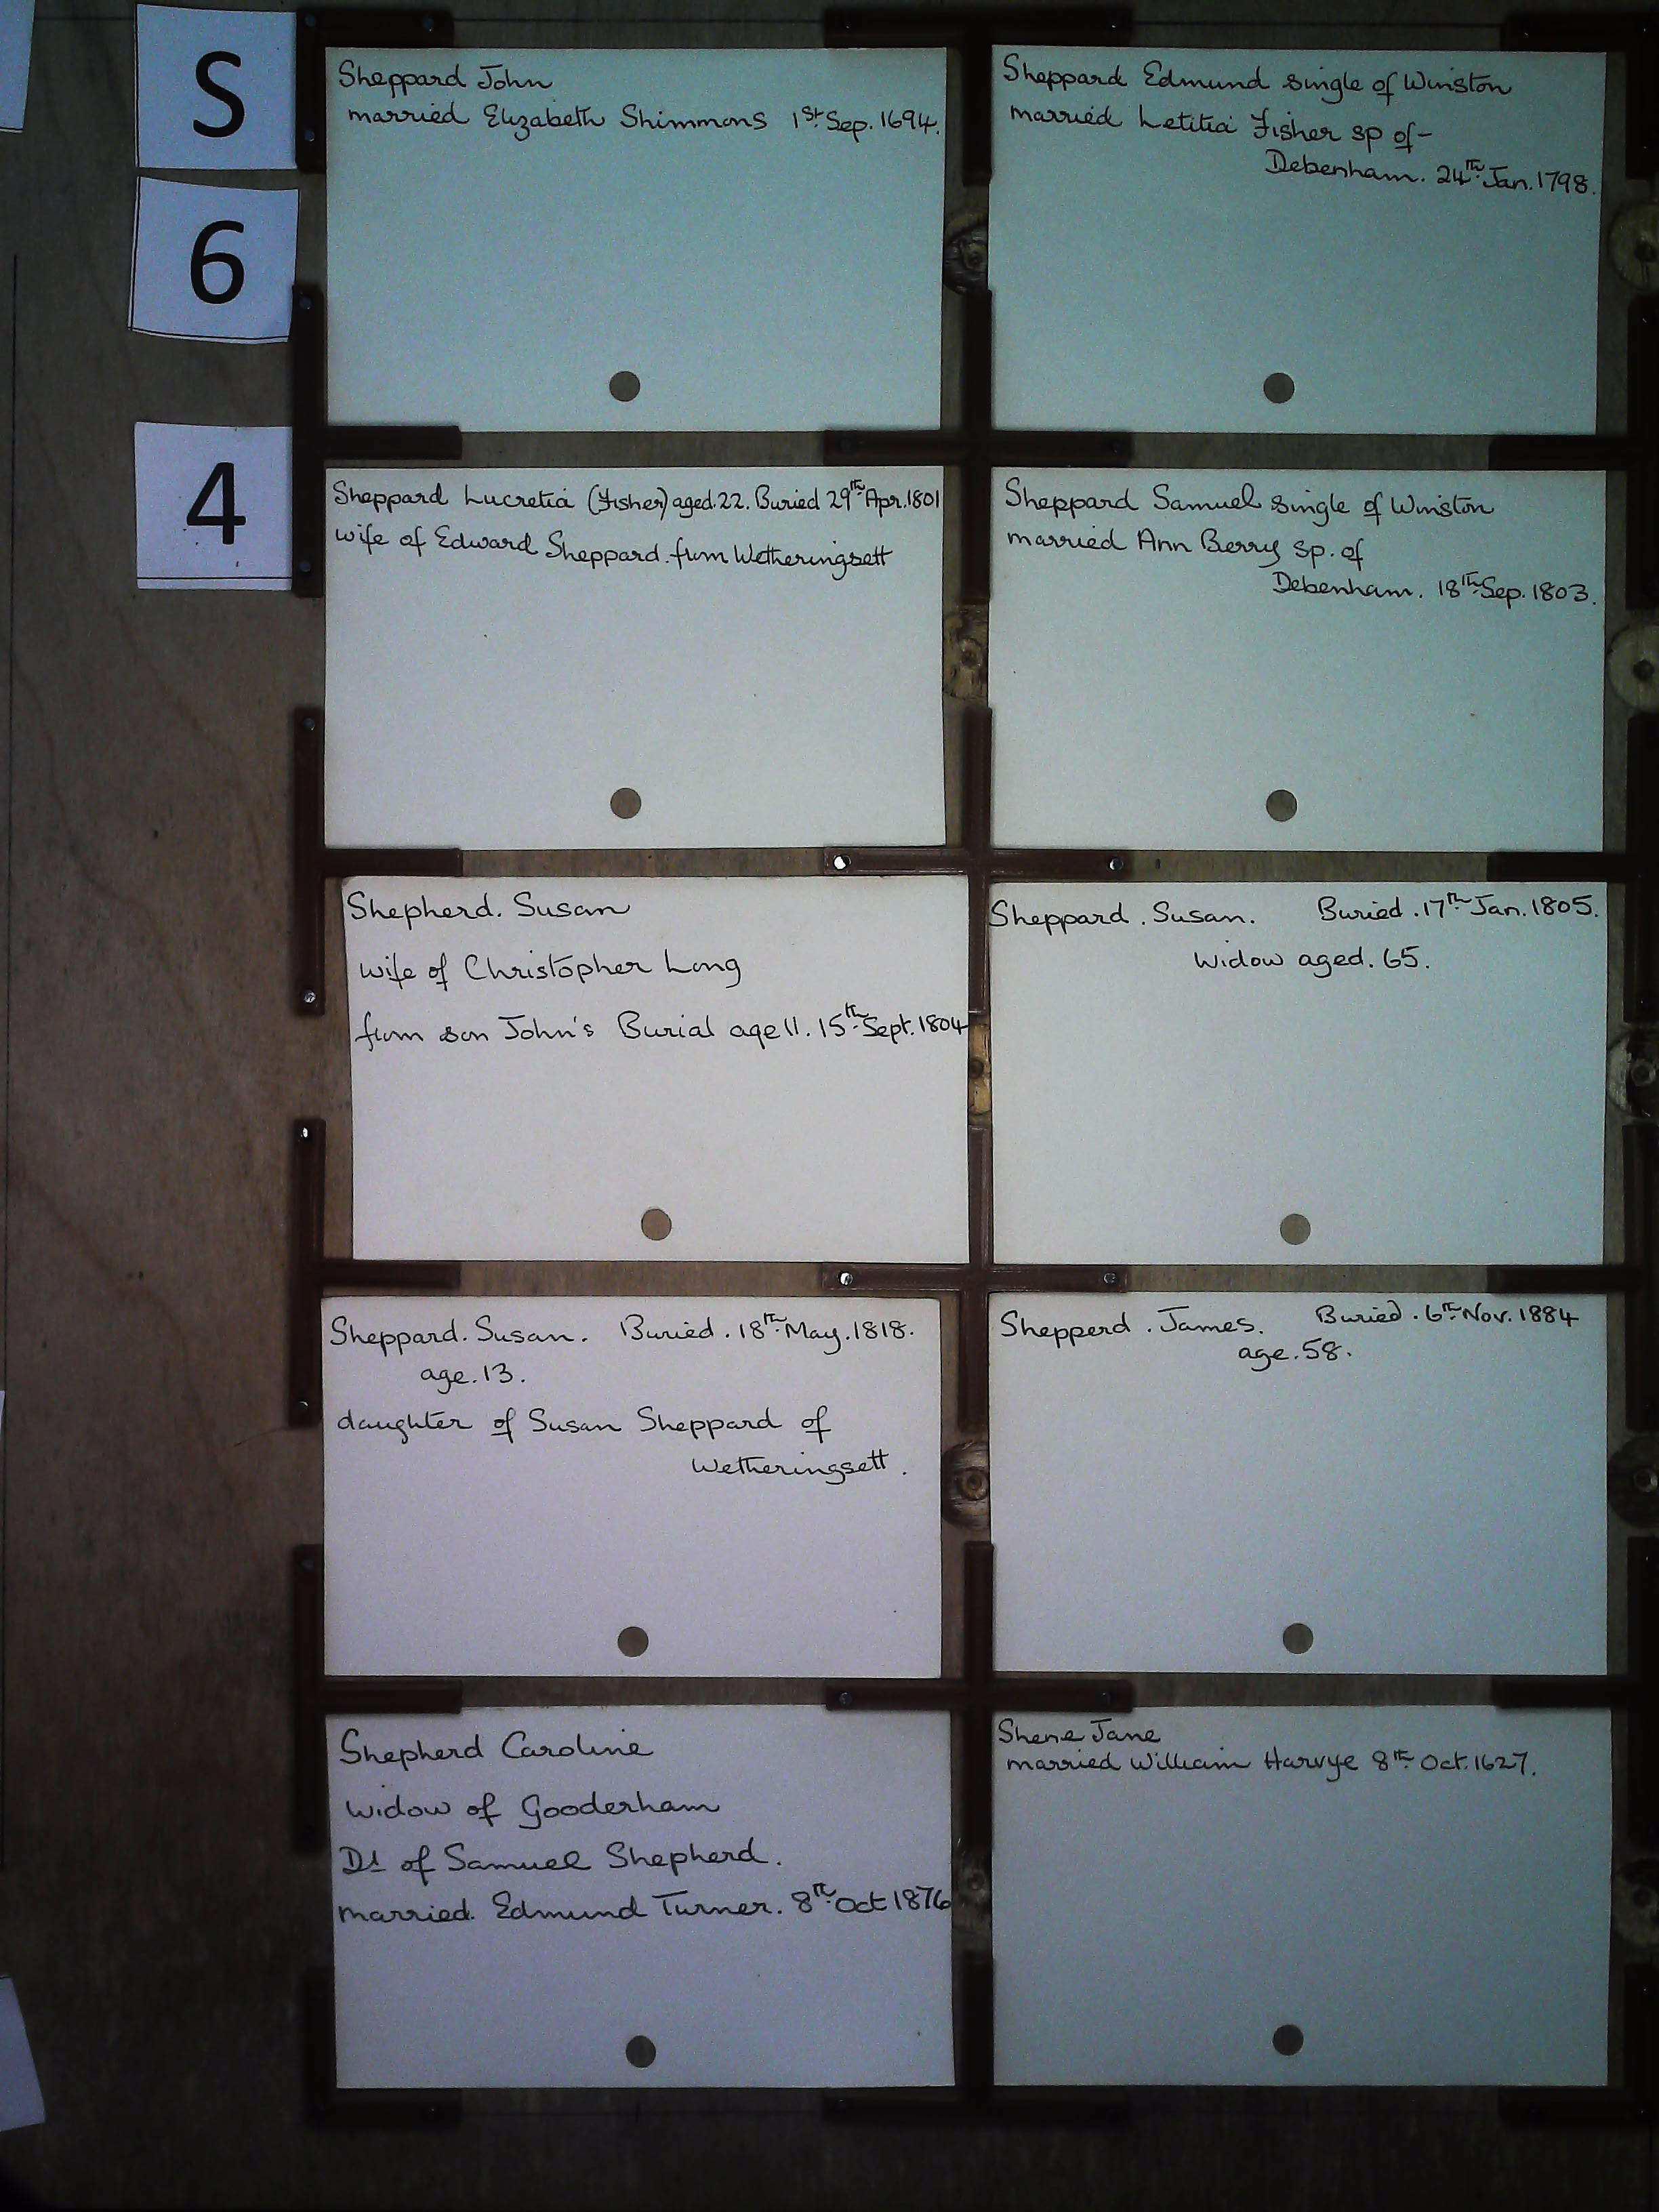 S
6
4
Sheppard John
married Elizabeth Shimmons 1st Sep. 1694.
Sheppard Edmund single of Winston
married Letitia Fisher sp of-
Debenham. 24th Jan. 1798.
Sheppard Lucretia (Fisher) aged.22. Buried 29th Apr.1801
wife of Edward Sheppard. from Wetheringsett
Sheppard Samuel single of Winston
married Ann Berry sp. of
Debenham. 18th Sep. 1803.
Shepherd. Susan
wife of Christopher Long
from son John's Burial age 11. 15th Sept. 1804
Sheppard. Susan. Buried. 17th Jan. 1805.
Widow aged. 65.
Sheppard. Susan. Buried. 18th May. 1818.
age. 13.
daughter of Susan Sheppard of
Wetheringsett.
Shepperd. James. Buried. 6th Nov. 1884
age. 58.
Shepherd Caroline
Widow of Gooderham
Dt of Samuel Shepherd.
married. Edmund Turner. 8th Oct 1876
Shene Jane
married William Harvye 8th Oct. 1627.